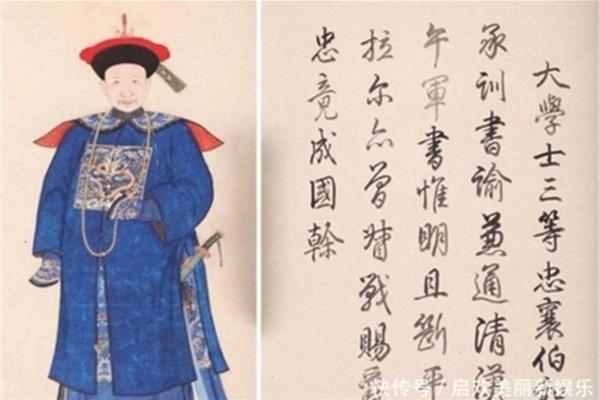 大學士三等忠襄伯
承訓書諭兼通清漢
午軍書惟明且斷平
拉尔亦曾督戰賜
忠竟成國幹
快传号 / 启欢美丽新娱乐